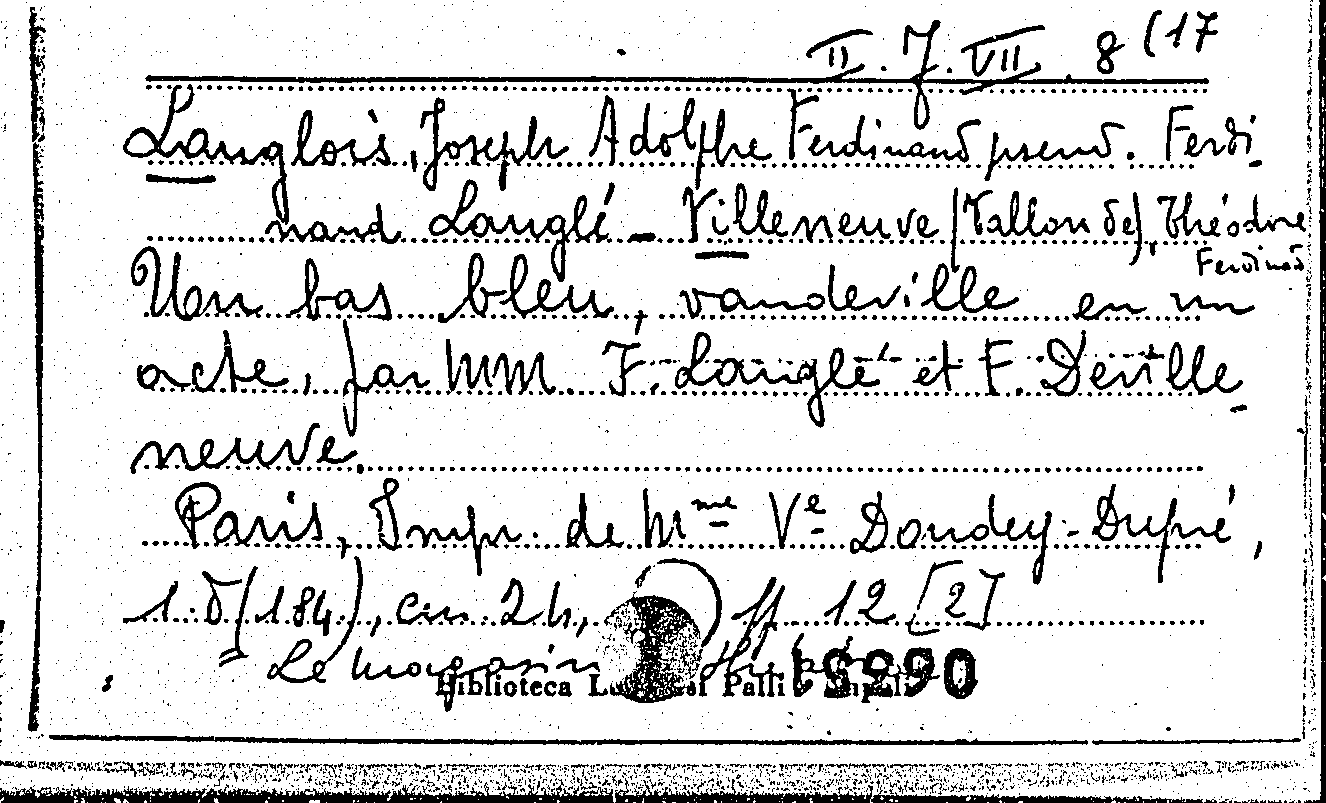 II. J. VII. 8 (17
Langlois, Joseph Adolphe Ferdinand pseud. Ferdi-
nand Langlé - Villeneuve (Vallon de), Théodore
Ferdinand
Un bas bleu, vaudeville en un
acte, par MM. F. Langlé et F. Deville-
neuve.
Paris, Impr. de Mme Ve Dondey-Dupré,
s. d (184 ), cm 24, pp 12 [2]
= Le magasin
Biblioteca